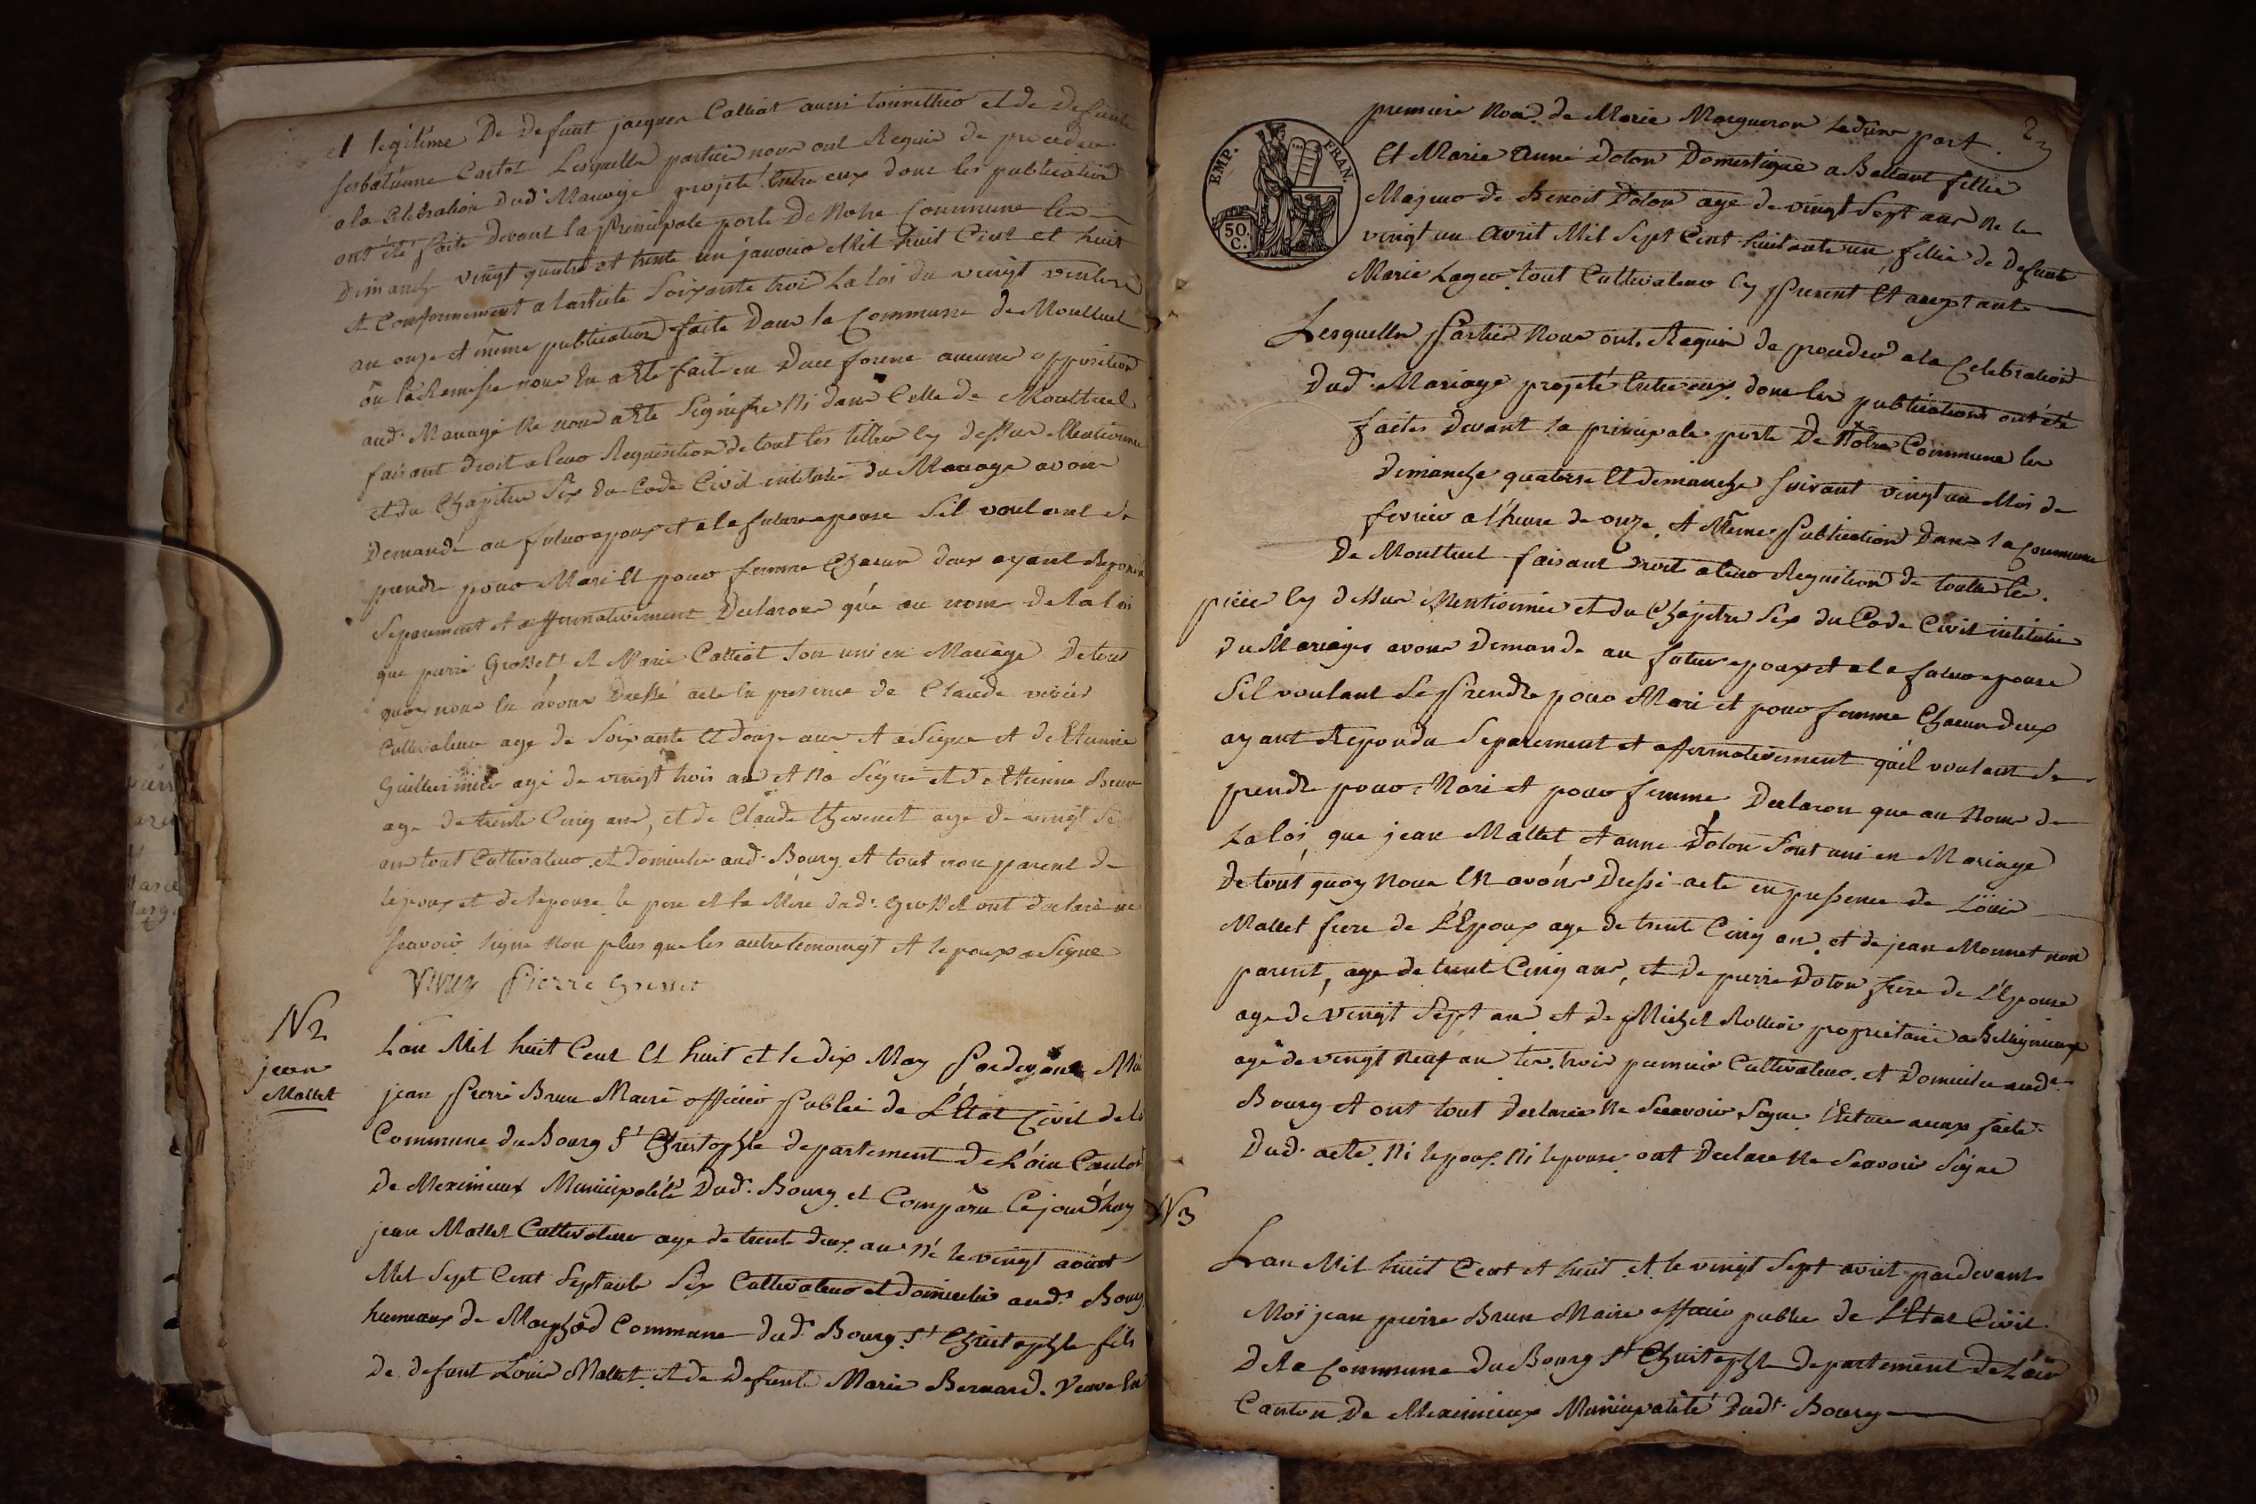 et legitime De Defunt jacques Calliat aussi tonnellier et de Defunte
sebastienne Castot Lesquelle parties nous ont Requis de proceder
a la Celebration dud. Mariage projeté Entre eux dont les publication
ont été faite Devant la Principale porte De Notre Commune les
Dimanche vingt quatre et trente un janvier Mil huit Cent et huit
et Conformement a larticle Soixante trois La loi du vingt ventose
an onze et même publication faite Dans la Commune de Montluel
aud. Mariage Ne nous a été Signifie Ni dans Celle de Montluel
faisant droit a leur Requisition de tout les titres Cy dessus Mentionne
et du Chapitre Six du Code Civil intitulé du Mariage avons
Demandé au futur epoux et a la future epouse Sil voulant se
prendre pour Mari et pour femme Chacun deux ayant Repondu
Separement et affirmativement Declarons que au nom de la loi
que pierre Grosset et Marie Calliat Son uni en Mariage De tout
quoy nous En avons Dressé acte En presence de Claude
Cultivateur age de Soixante et douze ans et a Signe et de Etienne
age de vingt trois ans et Na Signé et de Etienne Brun
age de trente Cinq ans, et de Claude thevenet age de vingt
ans tout Cultivateur et Domicilie aud. Bourg et tout non parent de
lepoux et de lepouse le pere et la Mere dud. Grosset ont declare ne
Scavoir Signe Non plus que les autre temoingt et lepoux a Signe
Pierre Grosset
N 2
jean
Mallet
Lan Mil huit Cent et huit et le dix May Pardevant Moi
jean Pierre Brun Maire officier Public de L'Etat Civil de la
Commune du Bourg St Christophle departement de L'ain Canton
De Meximieux Municipalité Dud. Bourg et Comparu Cejourd'huy
jean Mallet Cultivateur age de trente deux ans Né le vingt aoust
Mil Sept Cent Septante Six Cultivateur et domicilie aud. Bourg
hameaux de Commune dud. Bourg St Christophle fils
De defunt Louis Mallet et de defunte Marie Bernard. Veuve En
EMP. FRAN.
50.
C.
premiere Noce de Marie Marqueron Dune part.
Et Marie anne Dolon Domestique a Ballant fillie
Majeur de Benoit Dolon age de vingt Sept ans Ne le
vingt un avril Mil Sept Cent huitante un, fillie de Defunte
Marie Lager tout Cultivateur Cy present Et aceptant
Lesquelle Partie Nous ont Requis de proceder a la Celebration
Dud. Mariage projeté Entre eux dont les publications ont été
faites Devant la principale porte De Notre Commune les
dimanche quatorze Et dimanche Suivant vingt un Mois de
fevrier a l'heure de onze, et Même Publication Dans la Commune
De Montluel faisant droit a leur Requisition de toutte les
piece Cy dessus Mentionnée et du Chapitre Six du Code Civil intitulée
Du Mariages avons Demande au futur epoux et a la futur epouse
Sil voulant Se Prendre pour Mari et pour femme Chacun deux
ayant Repondu Separement et affirmativement qu'il voulant Se
prendre pour Mari et pour femme Declaron que au Nom de
La loi, que jean Mallet et anne Dolon Sont uni en Mariage
De tout quoy Nous En avons Dressé acte en presence de Louis
Mallet frere de L'Epoux age de trente Cinq ans et de jean Monnet non
parent, age de trent Cinq ans, et de pierre Dolon frere de L'Epouse
age de vingt Sept ans et de Michel Rollier propriétaire a Beligneux
age de vingt Neuf ans les trois premier Cultivateur et Domicilie aud.
Bourg et ont tout Declaré Ne Scavoir Signe Lecture a eux faite
Dud. acte Ni lepoux Ni lepouse ont Declare Ne Scavoir Signe
N 3
Lan Mil huit Cent et huit et le vingt Sept avril pardevant
Moi jean pierre Brun Maire officier public de L'Etat Civil
De la Commune du Bourg St Christophle Departement de L'ain
Canton De Meximieux Municipalité Dud. Bourg